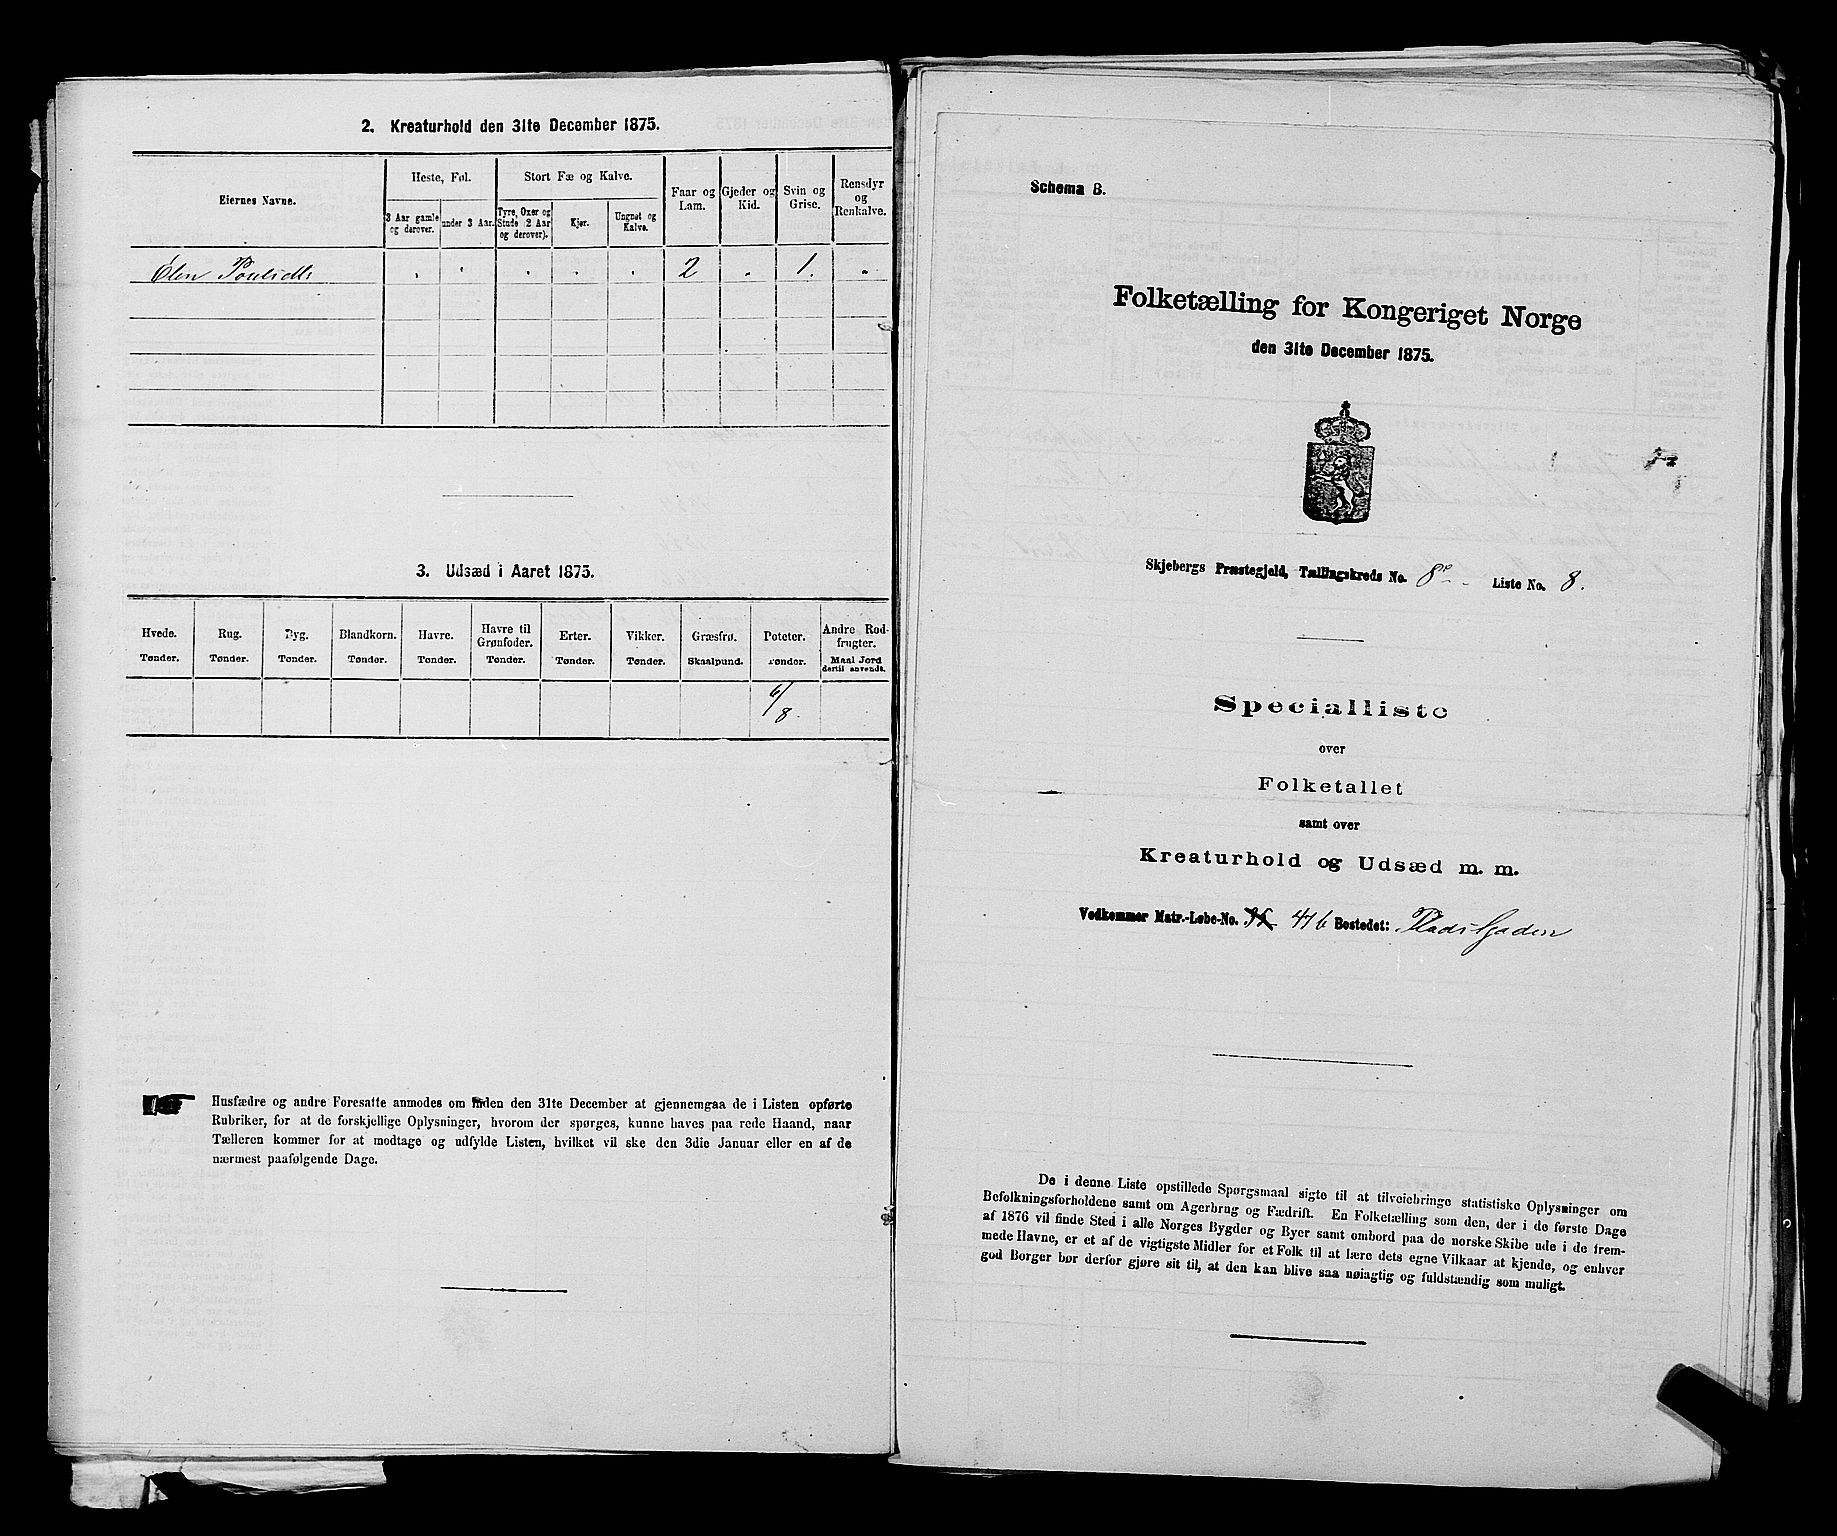 2. Kreaturhold den 31te December 1875.
Eiernes Navne.
Heste, Føl.
Stort Fæ og Kalve.
Faar og Lam.
Gjeder og Kid.
Svin og Grise.
Rensdyr og Renkalve.
3 Aar gamle og derover.
under 3 Aar.
Tyre, Oxer og Stude (2 Aar og derover).
Kjør.
Ungnøt og Kalve.
Elen 2 1.
3. Udsæd i Aaret 1875.
Hvede. Rug. Byg. Blandkorn. Havre. Havre til Grønfoder. Erter. Vikker. Græsfrø. Poteter. Andre Rodfrugter.
Tønder. Tønder. Tønder. Tønder. Tønder. Tønder. Tønder. Tønder. Skaalpund. Tønder. Maal Jord dertil anvendt.
6/8.
Husfædre og andre Foresatte anmodes om inden den 31te December at gjennemgaa de i Listen opførte
Rubriker, for at de forskjellige Oplysninger, hvorom der spørges, kunne haves paa rede Haand, naar
Tælleren kommer for at modtage og udfylde Listen, hvilket vil ske den 3die Januar eller en af de
nærmest paafølgende Dage.
Schema B.
Folketælling for Kongeriget Norge
den 31te December 1875.
Skjebergs Præstegjeld, Tællingskreds No. 8 Liste No. 8.
Specialliste
over
Folketallet
samt over
Kreaturhold og Udsæd m. m.
Vedkommer Matr.-Løbe-No. 41b Bostedet: Plads Gaden
De i denne Liste opstillede Spørgsmaal sigte til at tilveiebringe statistiske Oplysninger om
Befolkningsforholdene samt om Agerbrug og Fædrift. En Folketælling som den, der i de første Dage
af 1876 vil finde Sted i alle Norges Bygder og Byer samt ombord paa de norske Skibe ude i de frem-
mede Havne, er et af de vigtigste Midler for et Folk til at lære dets egne Vilkaar at kjende, og enhver
god Borger bør derfor gjøre sit til, at den kan blive saa nøiagtig og fuldstændig som muligt.